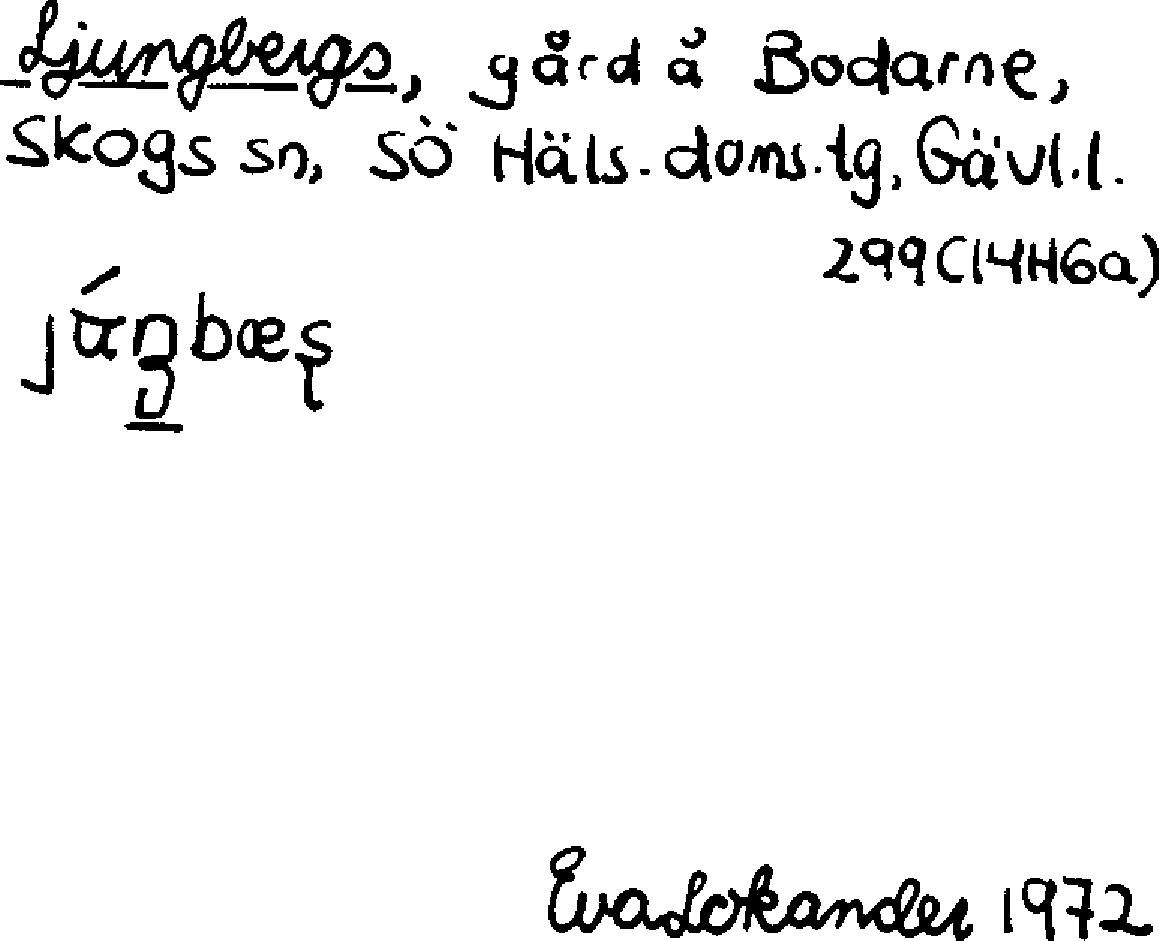 Ljungbergs, gård å Bodarne,
Skogs sn, Sö Häls. doms.tg, Gävl.l.
299(14H6a)
Eva Lokander 1972